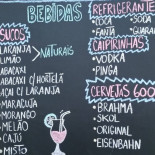 BEBIDAS
SUCOS
LARANJA
LIMÃO
ABACAXI
ABACAXI C/ HORTELÃ
AÇAÍ C/ LARANJA
MARACUJÁ
MORANGO
MELÃO
CAJÚ
MISTO
> NATURAIS
REFRIGERANTE
COCA
SODA
FANTA
GUARA
CAIPIRINHAS
• VODKA
• PINGA
CERVEJAS 600
• BRAHMA
• SKOL
• ORIGINAL
• EISENBAHN